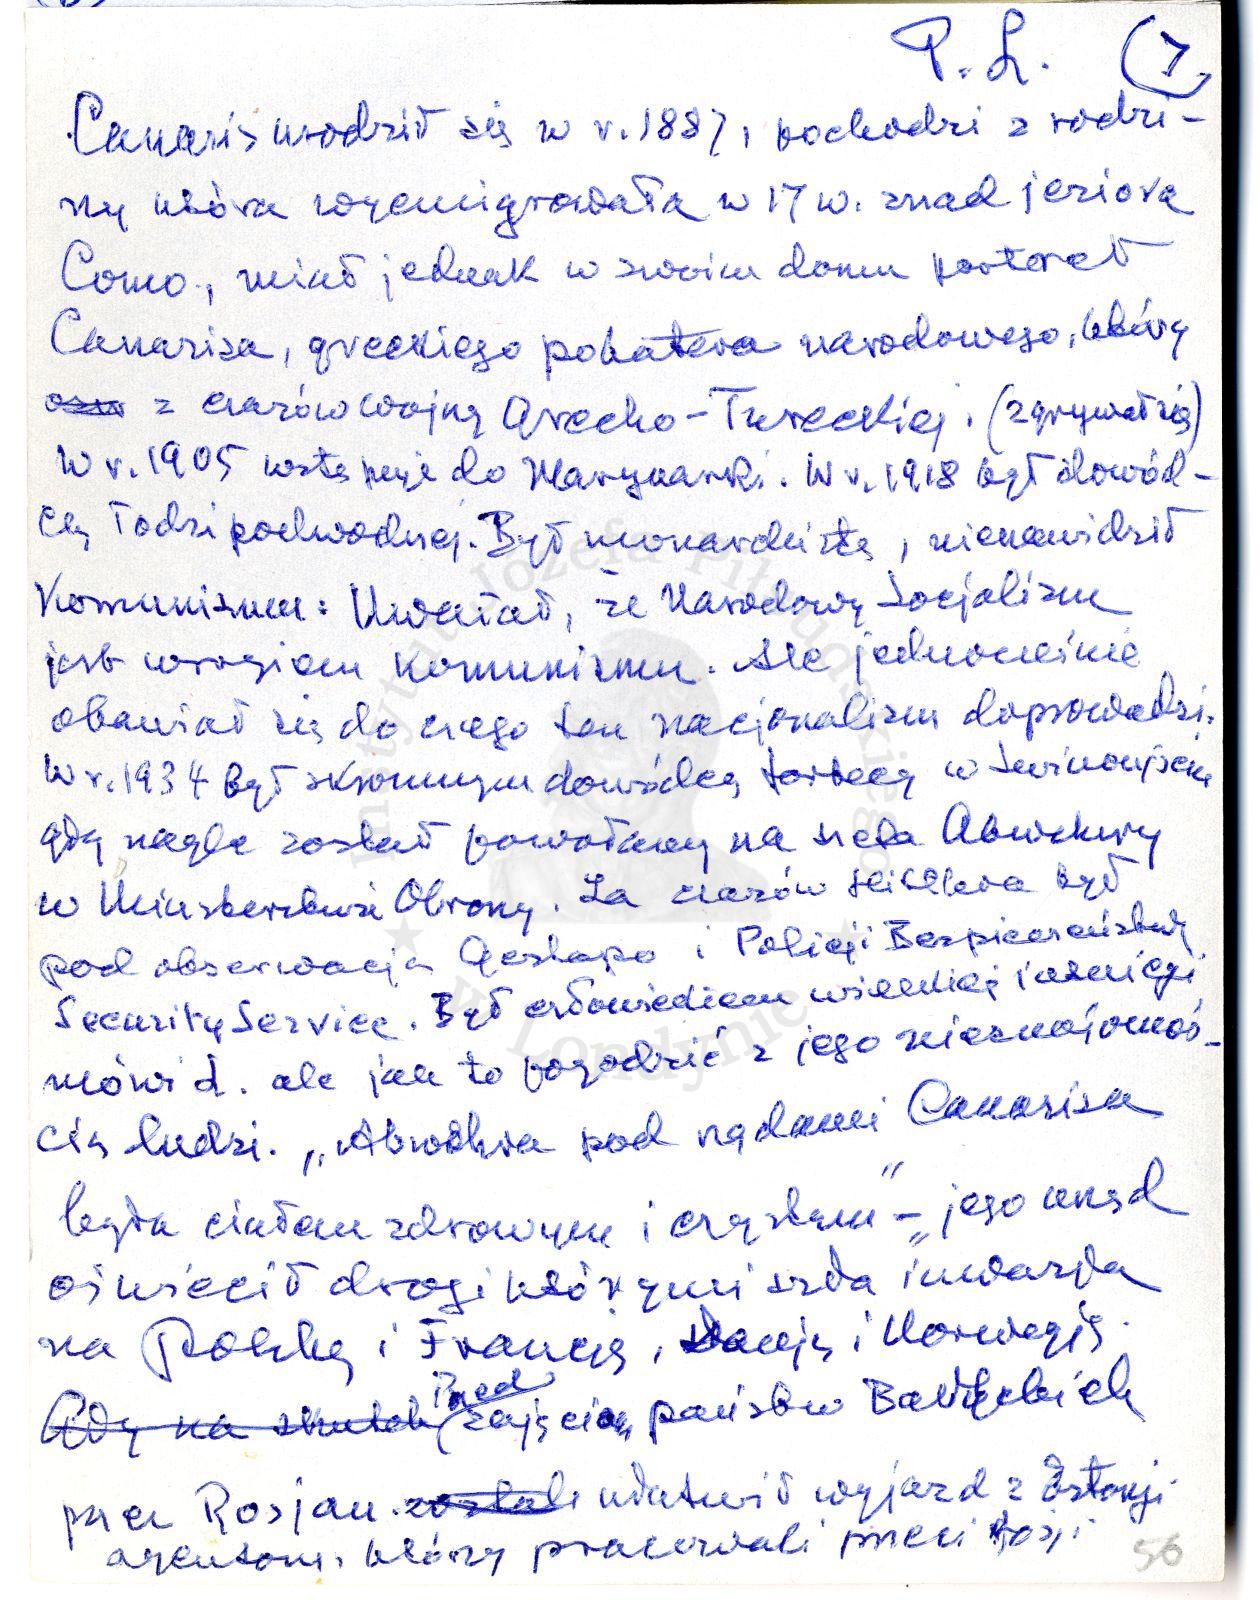 P. L. (7)
Canaris urodził się w r. 1887, pochodzi z rodzi-
ny która wyemigrowała w 17 w. znad jeziora
Como., miał jednak w swoim domu portret
Canarisa, greckiego bohatera narodowego, który
z czasów wojny Grecko-Tureckiej. (zgrywał się)
W r. 1905 wstępuje do Marynarki. W r. 1918 był dowód-
cą łodzi podwodnej. Był monarchistą, nienawidził
Komunizmu: Uważał, że Narodowy Socjalizm
jest wrogiem Komunizmu. Ale jednocześnie
obawiał się do czego ten nacjonalizm doprowadzi.
W r. 1934 był skromnym dowódcą fortecy w Swinoujściu
gdy nagle został powołany na szefa Abwehry
w Ministerstwie Obrony. Za czasów Hitlera był
pod obserwacją Gestapo i Policji Bezpieczeństwa
Security Service. Był człowiekiem wielkiej inteligencji
mówi d. ale jak to pogodzić z jego nieznajomoś-
cią ludzi. „Abwehra pod rządami Canarisa
była ciałem zdrowym i czystym" – „jego urząd
oświecił drogi którymi szła inwazja
na Polskę i Francję, Danję i Norwegję.
Gdy na skutek Przed zajęciem państw Bałtyckich
przez Rosjan zostali ułatwił wyjazd z Estonji
agentom, którzy pracowali przeci Rosji
56
Instytut Józefa Piłsudskiego
w Londynie